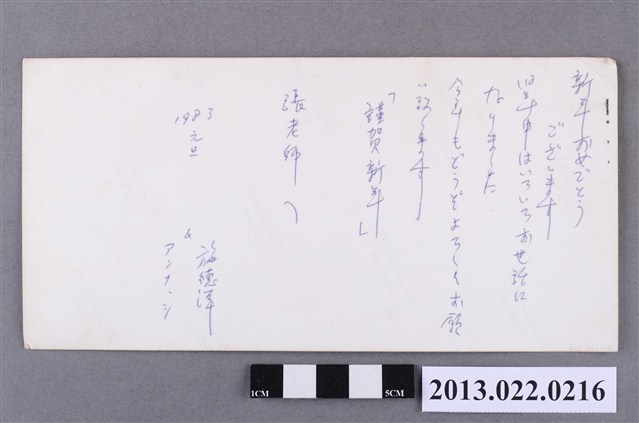 新年おめでとう
ございます
旧年中はいろいろお世話に
なりました
今年もどうぞよろしくお願
い致します
「謹賀新年」
張老師へ
1983
元旦
施德洋
&
アンナ
1CM
5CM
2013.022.0216